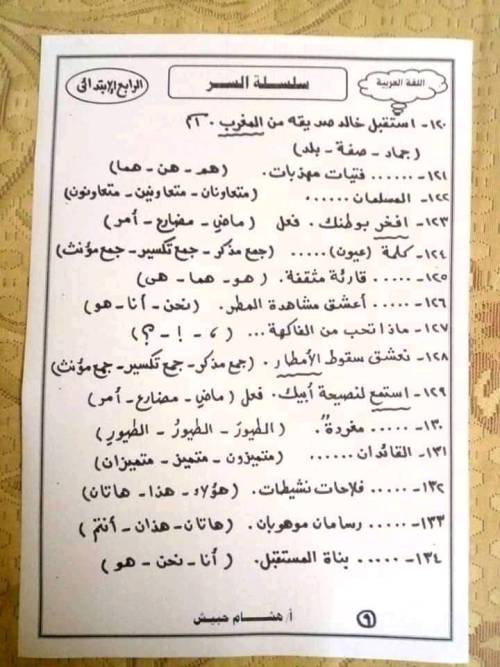 اللغة العربية
سلسلة السر
الرابع الإبتدائى
١٢٠- استقبل خالد صديقه من المغرب
(جماد - صفة - بلد)
١٢١- ...... فتيات مهذبات. (هم - هن - هما)
١٢٢- المسلمان ...... (متعاونان - متعاونين - متعاونون)
١٢٣- افخر بوطنك. فعل (ماض - مضارع - أمر)
١٢٤- كلمة (عيون) ..... (جمع مذكر - جمع تكسير - جمع مؤنث)
١٢٥- ..... قارئة مثقفة. (هو - هما - هى)
١٢٦- ..... أعشق مشاهدة المطر. (نحن - أنا - هو)
١٢٧- ماذا تحب من الفاكهة ... (، - ! - ؟)
١٢٨- نعشق سقوط الأمطار. (جمع مذكر - جمع تكسير - جمع مؤنث)
١٢٩- استمع لنصيحة أبيك. فعل (ماض - مضارع - أمر)
١٣٠- ..... مغردةٌ. (الطيورَ - الطيورُ - الطيورِ)
١٣١- القائدان ...... (متميزون - متميز - متميزان)
١٣٢- ..... فلاحات نشيطات. (هؤلاء - هذا - هاتان)
١٣٣- ..... رسامان موهوبان. (هاتان - هذان - أنتم)
١٣٤- ..... بناة المستقبل. (أنا - نحن - هو)
أ/ هشام حبيش
٩